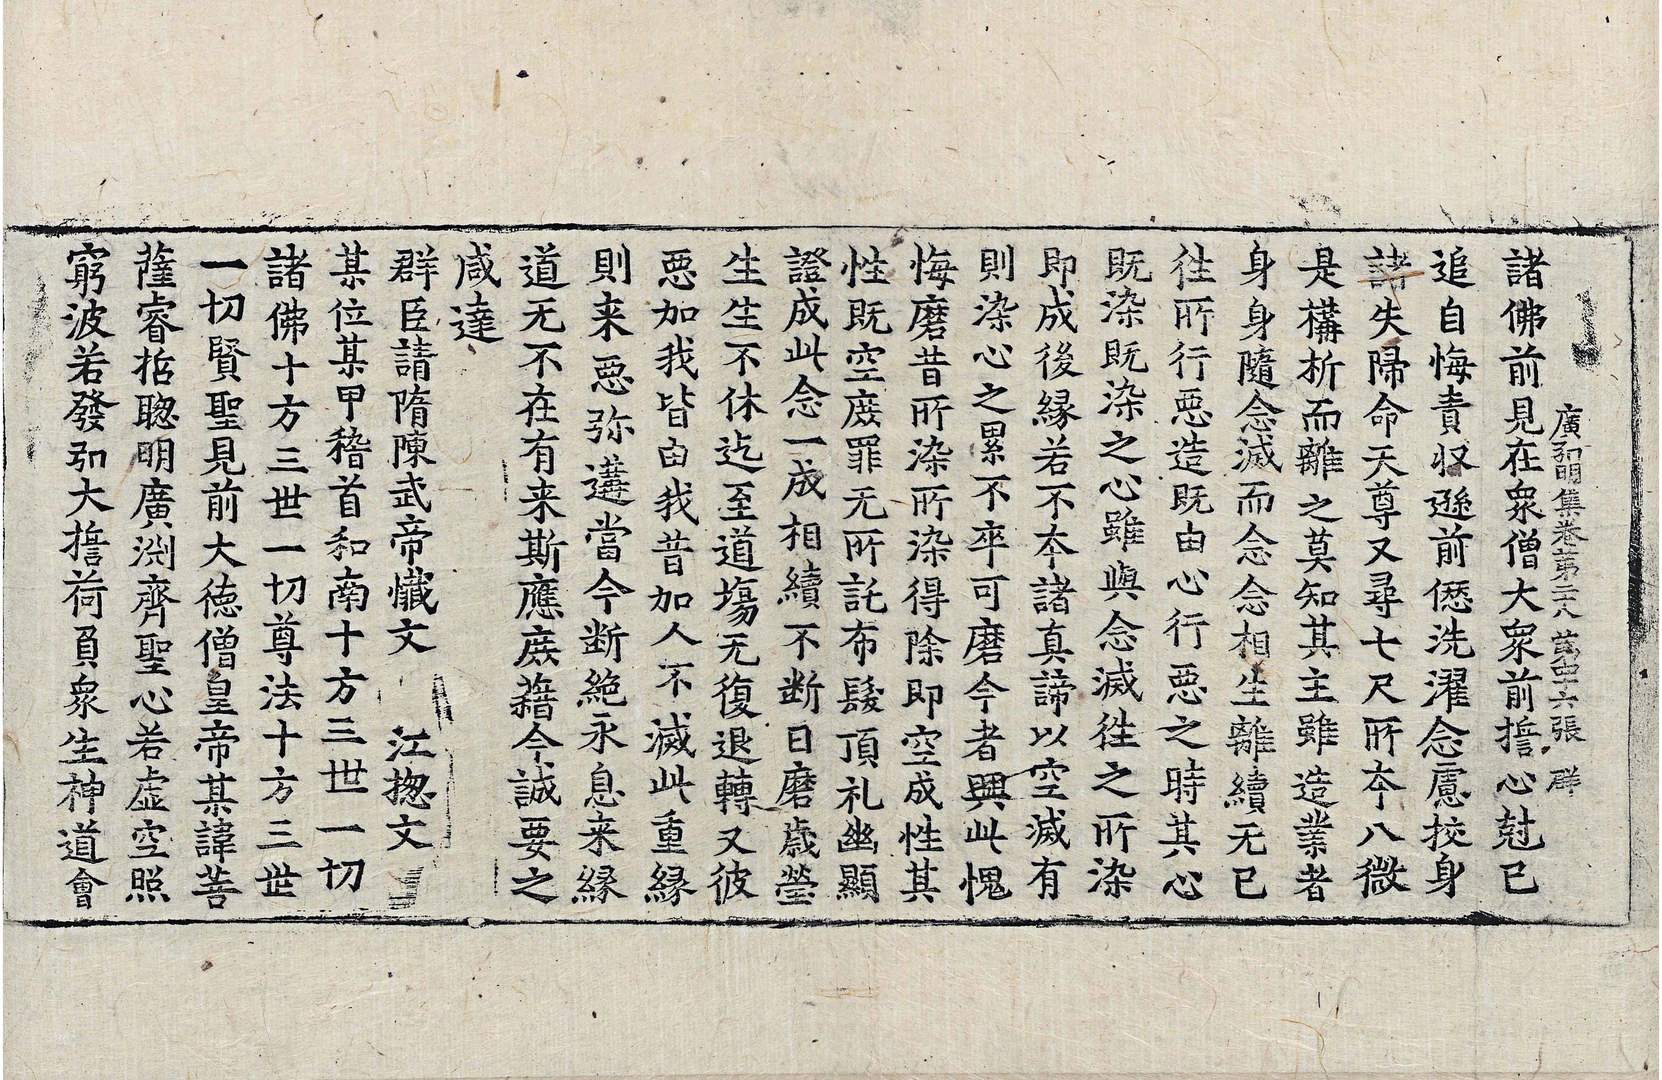 廣弘明集卷第二八 第四六張 群
諸佛前見在衆僧大衆前誓心尅已
追自悔責収遜前𠎝洗濯念慮挍身
諸失歸命天尊又尋七尺所夲八微
是構析而離之莫知其主雖造業者
身身隨念滅而念念相生離續无已
徃所行惡造既由心行惡之時其心
既染既染之心雖與念滅徃之所染
即成後縁若不夲諸真諦以空滅有
則染心之累不卒可磨今者興此愧
悔磨昔所染所染得除即空成性其
性既空庻罪无所託布髮頂礼幽顯
證成此念一成相續不断日磨歳瑩
生生不休迄至道場无復退轉又彼
惡加我皆由我昔加人不滅此重縁
則来惡弥遘當今断絶永息来縁
道无不在有来斯應庻藉今誠要之
咸達
群臣請隋陳武帝懺文 江揔文
某位某甲稽首和南十方三世一切
諸佛十方三世一切尊法十方三世
一切賢聖見前大德僧皇帝某諱菩
薩睿哲聰明廣渕齊聖心若虚空照
窮波若發弘大誓荷負衆生神道會